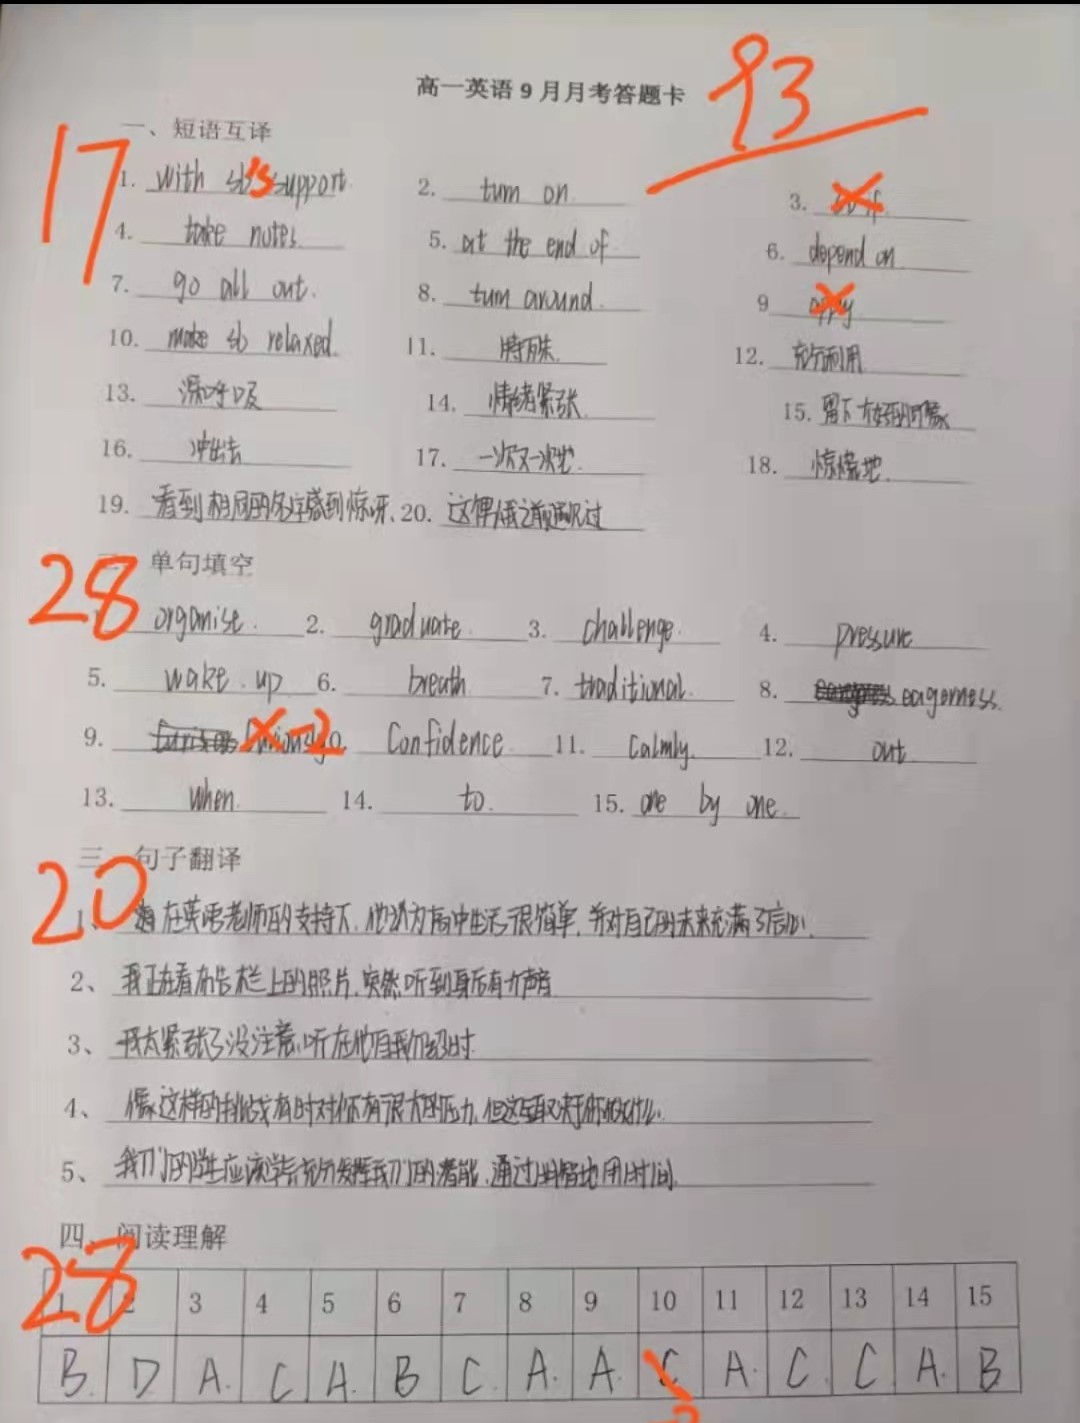 高一英语9月月考答题卡 93
一、短语互译
17
1. with sb's support. 2. turn on. 3.
4. take notes. 5. at the end of 6. depend on.
7. go all out. 8. turn around. 9
10. make sb relaxed. 11. 特殊. 12. 充分利用
13. 深呼吸 14. 情绪紧张. 15. 留下 好的印象
16. 冲出去 17. 一次又一次地. 18. 慌慌地.
19. 看到相同的名字感到惊讶. 20. 这俩
28 单句填空
organise. 2. graduate. 3. challenge. 4. pressure
5. wake up 6. breath 7. traditional. 8. eagerness.
9. X-2 0. Confidence 11. Calmly. 12. out.
13. when. 14. to. 15. one by one.
三 句子翻译
20
1、在英语老师的支持下,他认为高中生活很简单,并对自己的未来充满了信心.
2、我正在看布告栏上的照片,突然听到身后有个声音
3、我太紧张了没注意听在他自我介绍时.
4、像这样的挑战有时对你有很大的压力,但这取决于你 做什么.
5、我们的学生应该学会充分发挥我们的潜能,通过明智地用时间.
四、阅读理解
28
1 2 3 4 5 6 7 8 9 10 11 12 13 14 15
B. D A. C A. B C. A. A. C A. C C A. B